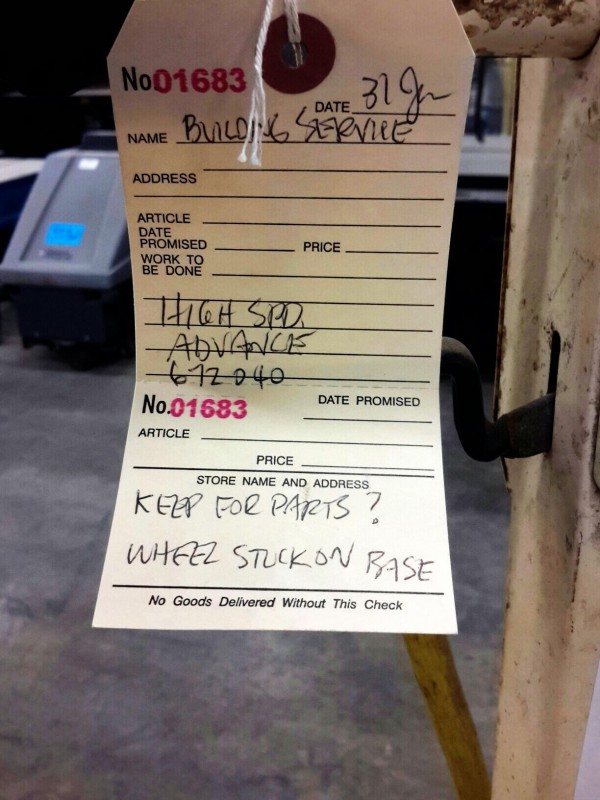 No 01683
DATE 31 Jan
NAME BUILDING SERVICE
ADDRESS
ARTICLE
DATE
PROMISED PRICE
WORK TO
BE DONE
HIGH SPD.
ADVANCE
672040
No. 01683 DATE PROMISED
ARTICLE
PRICE
STORE NAME AND ADDRESS
KEEP FOR PARTS ?
WHEEL STUCK ON BASE
No Goods Delivered Without This Check